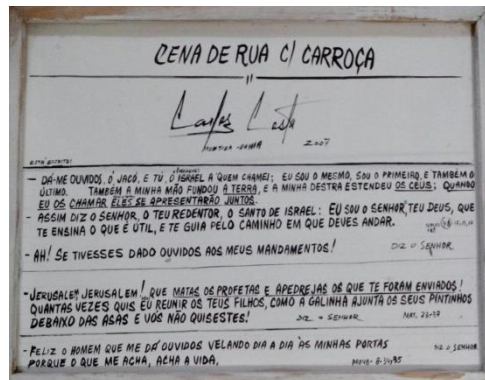 CENA DE RUA C/ CARROÇA
Carlos Costa
2007
ESTÁ ESCRITO:
- DÁ-ME OUVIDOS, Ó JACÓ, E TÚ, Ó ISRAEL A QUEM CHAMEI; EU SOU O MESMO, SOU O PRIMEIRO, E TAMBÉM O
ÚLTIMO. TAMBÉM A MINHA MÃO FUNDOU A TERRA, E A MINHA DESTRA ESTENDEU OS CÉUS; QUANDO
EU OS CHAMAR ELES SE APRESENTARÃO JUNTOS.
- ASSIM DIZ O SENHOR, O TEU REDENTOR, O SANTO DE ISRAEL: EU SOU O SENHOR, TEU DEUS, QUE
TE ENSINA O QUE É ÚTIL, E TE GUIA PELO CAMINHO EM QUE DEVES ANDAR.
- AH! SE TIVESSES DADO OUVIDOS AOS MEUS MANDAMENTOS! DIZ O SENHOR
- JERUSALEM JERUSALEM! QUE MATAS OS PROFETAS E APEDREJAS OS QUE TE FORAM ENVIADOS!
QUANTAS VEZES QUIS EU REUNIR OS TEUS FILHOS, COMO A GALINHA AJUNTA OS SEUS PINTINHOS
DEBAIXO DAS ASAS E VÓS NÃO QUISESTES! DIZ O SENHOR MAT. 23-37
- FELIZ O HOMEM QUE ME DÁ OUVIDOS VELANDO DIA A DIA ÀS MINHAS PORTAS DIZ O SENHOR
PORQUE O QUE ME ACHA, ACHA A VIDA.